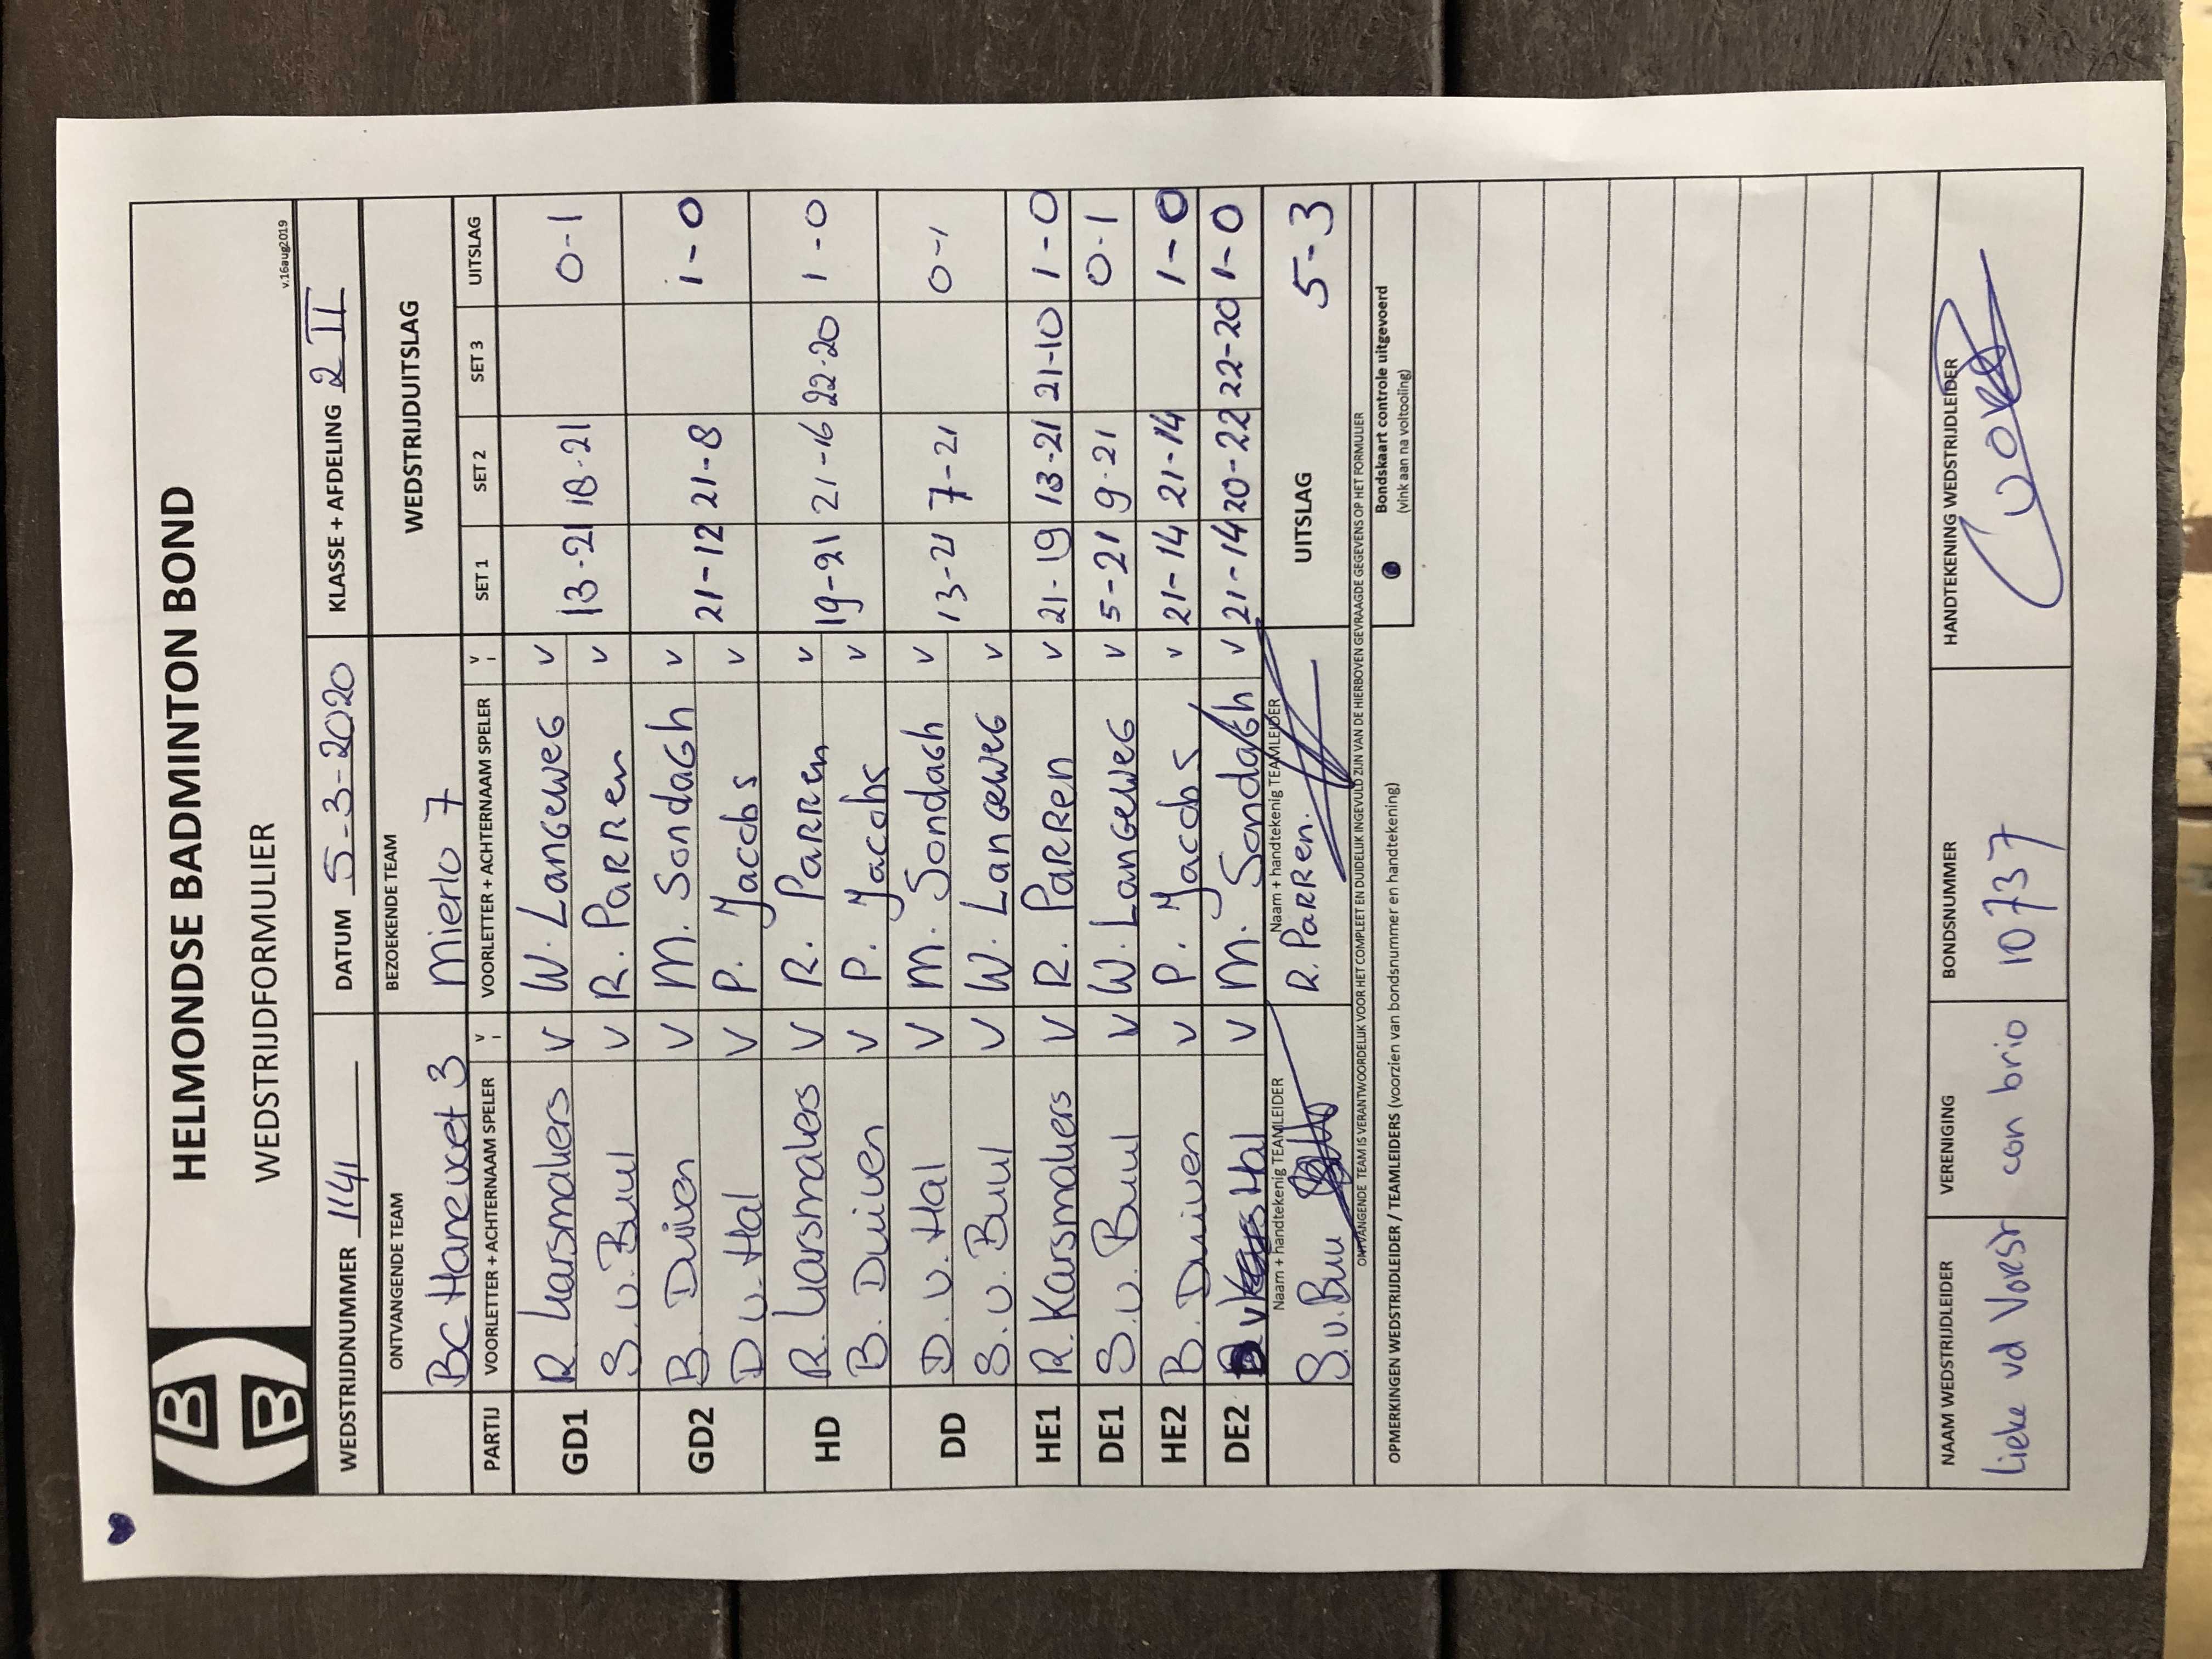 HELMONDSE BADMINTON BOND
WEDSTRIJDFORMULIER
v.16aug2019
WEDSTRIJDNUMMER 1141 DATUM 5-3-2020 KLASSE + AFDELING 2 II
ONTVANGENDE TEAM BEZOEKENDE TEAM WEDSTRIJDUITSLAG
BC Hanevoet 3 Mierlo 7
PARTIJ VOORLETTER + ACHTERNAAM SPELER V VOORLETTER + ACHTERNAAM SPELER V SET 1 SET 2 SET 3 UITSLAG
GD1 R. Karsmakers V W. Langeweg V 13-21 18-21 0-1
S. v. Buul V R. Parren V
GD2 B. Duiven V M. Sondagh V 21-12 21-8 1-0
D v. Hal V P. Jacobs V
HD R. Karsmakers V R. Parren V 19-21 21-16 22-20 1-0
B. Duiven V P. Jacobs V
DD D. v. Hal V M. Sondagh V 13-21 7-21 0-1
S. v. Buul V W. Langeweg V
HE1 R. Karsmakers V R. Parren V 21-19 13-21 21-10 1-0
DE1 S. v. Buul V W. Langeweg V 5-21 9-21 0-1
HE2 B. Duiven V P. Jacobs V 21-14 21-14 1-0
DE2 D v Hal V M. Sondagh V 21-14 20-22 22-20 1-0
Naam + handtekenig TEAMLEIDER Naam + handtekenig TEAMLEIDER UITSLAG 5-3
S. v. Buu R. Parren.
ONTVANGENDE TEAM IS VERANTWOORDELIJK VOOR HET COMPLEET EN DUIDELIJK INGEVULD ZIJN VAN DE HIERBOVEN GEVRAAGDE GEGEVENS OP HET FORMULIER
OPMERKINGEN WEDSTRIJDLEIDER / TEAMLEIDERS (voorzien van bondsnummer en handtekening)
Bondskaart controle uitgevoerd
(vink aan na voltooiing)
NAAM WEDSTRIJDLEIDER VERENIGING BONDSNUMMER HANDTEKENING WEDSTRIJDLEIDER
Lieke vd Vorst con brio 10737